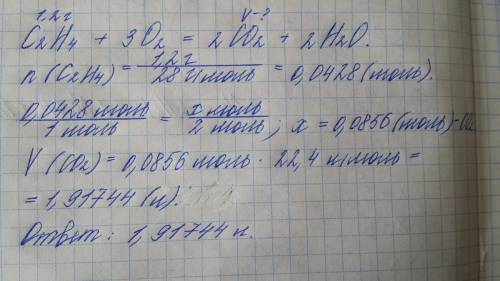 1,2 г V-?
C2H4 + 3O2 = 2CO2 + 2H2O.
n(C2H4) = 1,2 г / 28 г/моль = 0,0428 (моль).
0,0428 моль / 1 моль = x моль / 2 моль ; x = 0,0856 (моль)-
V(CO2) = 0,0856 моль · 22,4 л/моль =
= 1,91744 (л).
Ответ: 1,91744 л.